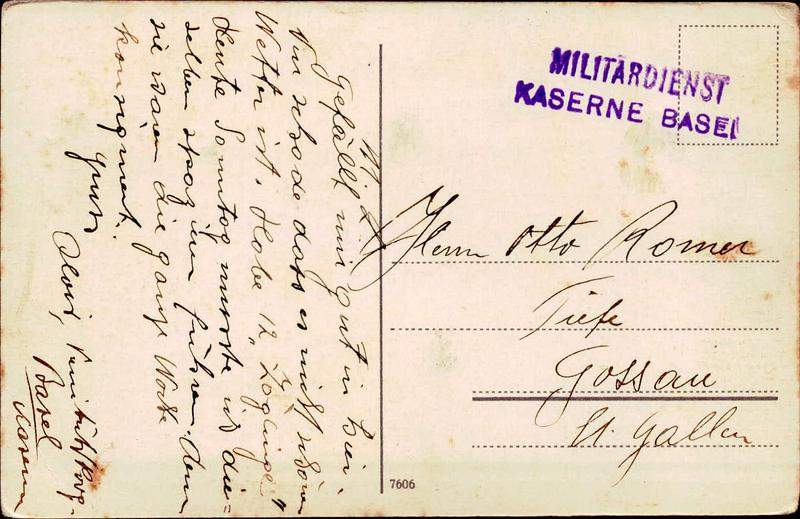 M. L.
Gefällt mir gut in hier.
Nur schade dass es nicht schönes
Wetter ist. Habe 12 „Zöglinge“
Heute Sonntag musste ich die=
selben spazieren führen denn
sie wären die ganze Woche
konsigniert.
Gruss
Alois,
Basel
Kaserne
MILITÄRDIENST
KASERNE BASEL
Herrn Otto Romer
Tiefe
Gossau
St. Gallen
7606